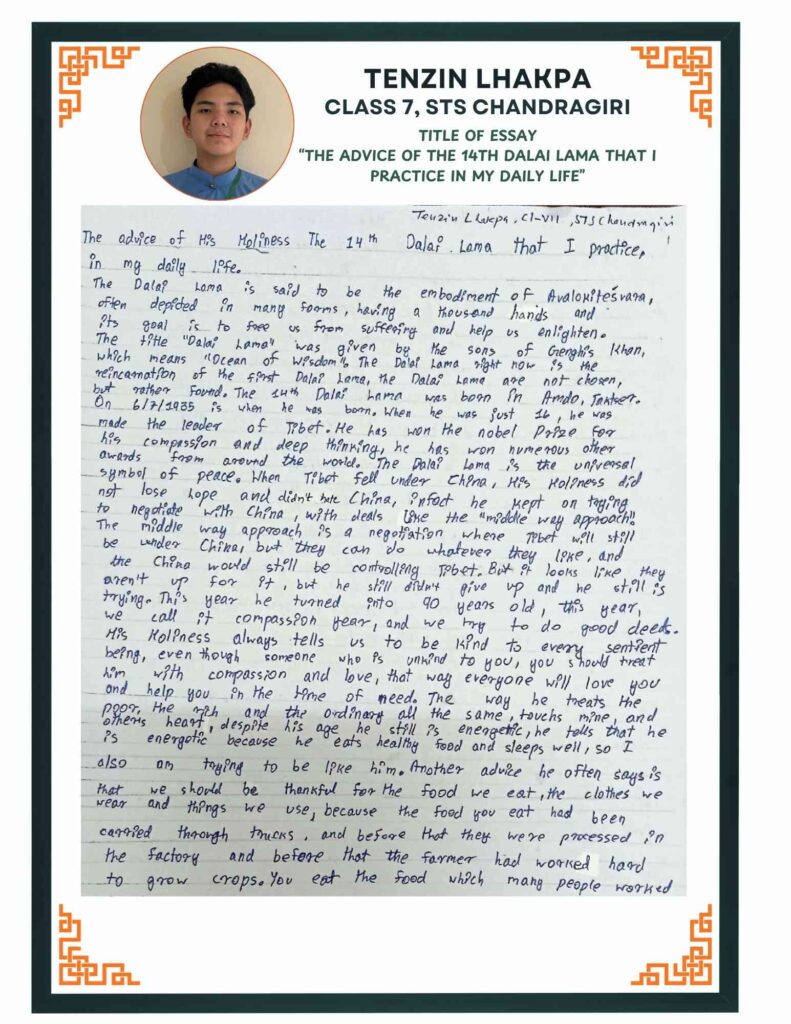 TENZIN LHAKPA
CLASS 7, STS CHANDRAGIRI
TITLE OF ESSAY
"THE ADVICE OF THE 14TH DALAI LAMA THAT I
PRACTICE IN MY DAILY LIFE"
Tenzin Lhakpa, Cl-VII, STS Chandragiri
The advice of His Holiness The 14th Dalai Lama that I practice,
in my daily life.
The Dalai Lama is said to be the embodiment of Avalokiteśvara,
often depicted in many forms, having a thousand hands and
its goal is to free us from suffering and help us enlighten.
The title "Dalai Lama" was given by the sons of Genghis Khan,
which means "Ocean of Wisdom". The Dalai Lama right now is the
reincarnation of the first Dalai Lama, the Dalai Lama are not chosen,
but rather found. The 14th Dalai Lama was born in Amdo, Taktser.
On 6/7/1935 is when he was born. When he was just 16, he was
made the leader of Tibet. He has won the nobel Prize for
his compassion and deep thinking, he has won numerous other
awards from around the world. The Dalai Lama is the universal
symbol of peace. When Tibet fell under China, His Holiness did
not lose hope and didn't hate China, infact he kept on trying
to negotiate with China, with deals like the "middle way approach".
The middle way approach is a negotiation where Tibet will still
be under China, but they can do whatever they like, and
the China would still be controlling Tibet. But it looks like they
aren't up for it, but he still didn't give up and he still is
trying. This year he turned into 90 years old, this year,
we call it compassion year, and we try to do good deeds.
His Holiness always tells us to be kind to every sentient
being, even though someone who is unkind to you, you should treat
him with compassion and love, that way everyone will love you
and help you in the time of need. The way he treats the
poor, the rich and the ordinary all the same, touchs mine, and
others heart, despite his age he still is energetic, he tells that he
is energetic because he eats healthy food and sleeps well, so I
also am trying to be like him. Another advice he often says is
that we should be thankful for the food we eat, the clothes we
wear and things we use, because the food you eat had been
carried through trucks, and before that they were processed in
the factory and before that the farmer had worked hard
to grow crops. You eat the food which many people worked